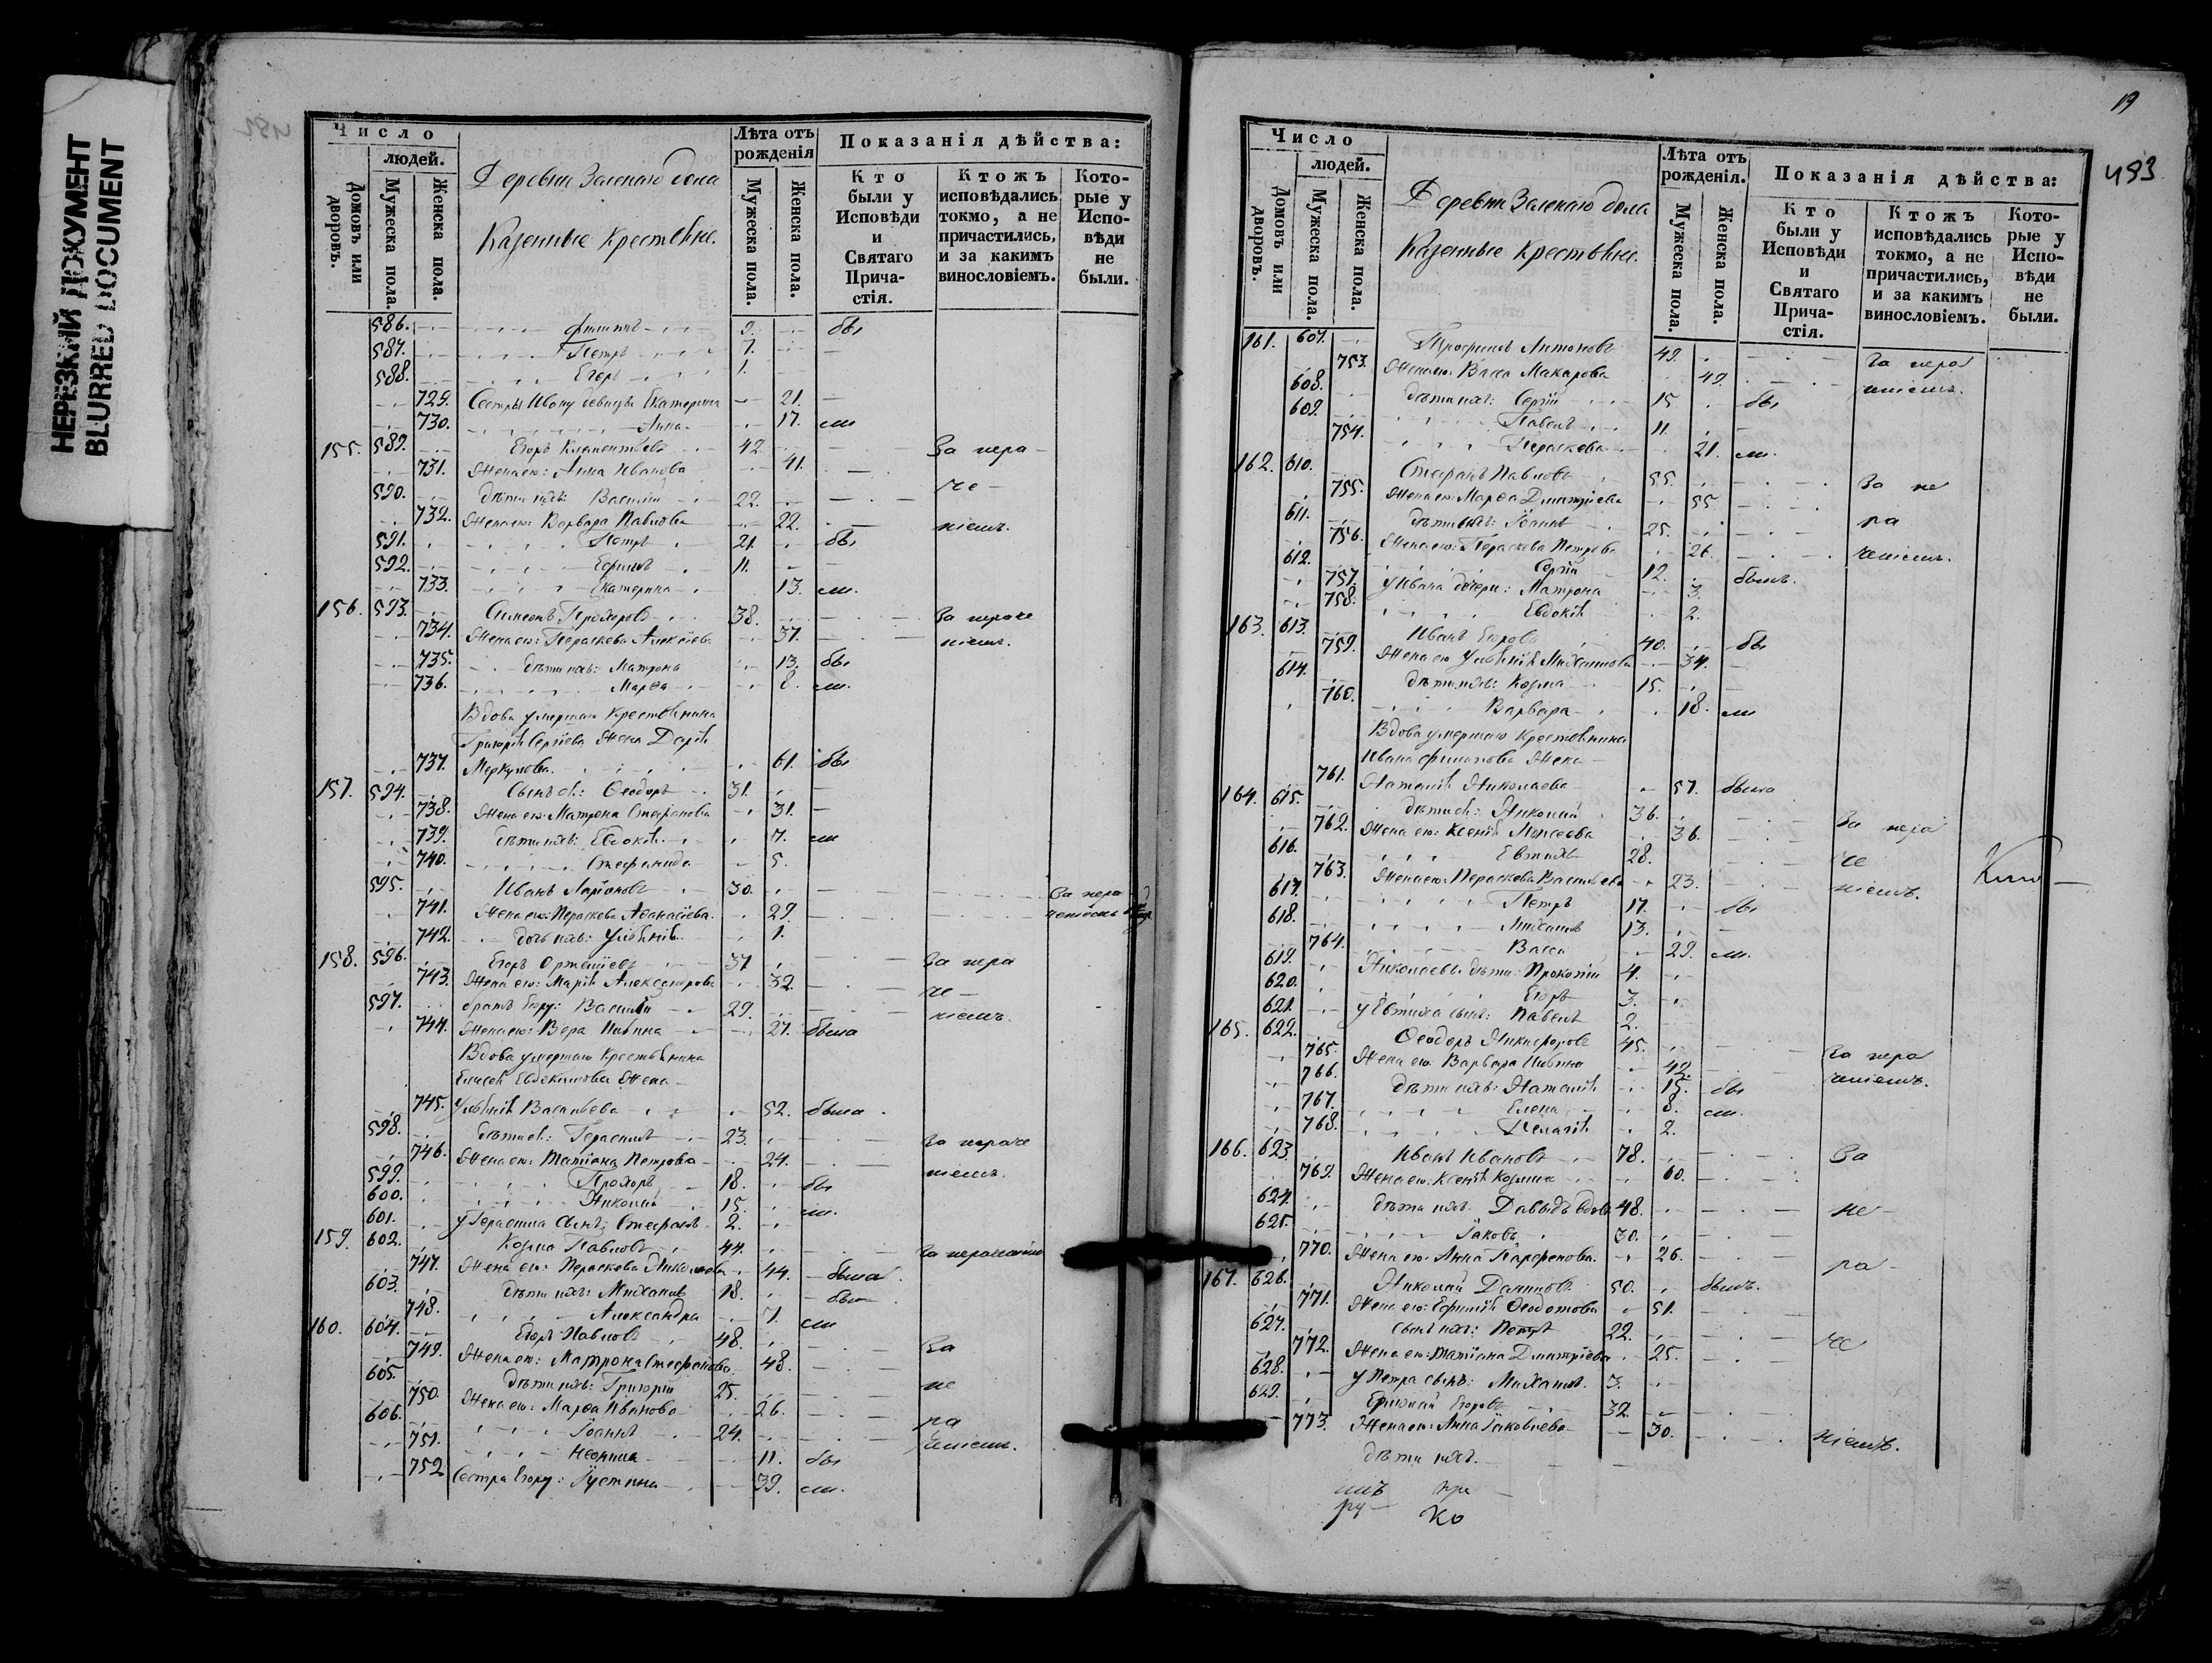 НЕРЕЗКИЙ ДОКУМЕНТ
BLURRED DOCUMENT
Число
людей.
Домовъ или дворовъ.
Мужеска пола.
Женска пола.
Деревни Зеленаго дола
Казенные крестьяне.
Лѣта отъ рожденія
Мужеска пола.
Женска пола.
Показанія дѣйства:
Кто были у Исповѣди и Святаго Прича-стія.
Ктожъ исповѣдались токмо, а не причастились, и за какимъ винословіемъ.
Кото-рые у Испо-вѣди не были.
586. Филиппъ 9. бы
587. Петръ 7.
588. Егоръ 1.
729. Сестры Ивану девицы Екатерина 21.
730. Анна 17. ли
155. 589. Егоръ Климентьевъ 42. За нера
731. Жена его: Анна Иванова 41.
590. дѣти ихъ: Василій 22. че
732. Жена его: Варвара Павлова 22. ніемъ.
591. Петръ 21. бы
592. Ефимъ 11.
733. Екатерина 13. ли.
156. 593. Симеонъ Прохоровъ 38. За нераче
734. Жена его: Параскева Алексіева 37. ніемъ.
735. дѣти ихъ: Матрона 13. бы
736. Марѳа 8. ли.
Вдова умершаго крестьянина
Григорія Сергіева жена Дарія
737. Меркулова. 61. бы
157. 594. Сынъ ея: Ѳеодоръ 31.
738. Жена его: Матрона Стефанова 31.
739. дѣти ихъ: Евдокія 7. ли
740. Стефанида 5.
595. Иванъ Ларіоновъ 30. За нера
741. Жена его: Параскева Аѳанасіева. 29. ченіемъ
742. дочь ихъ: Ульянія 1.
158. 596. Егоръ 37 За нера
743. Жена его: Марія Александрова 32. че
597. братъ Егору: Василій 29. ніемъ.
744. Жена его: Вера 27. была
Вдова умершаго крестьянина
Елисея Евдокимова жена
745. Ульянія Васильева 52. была.
598. дѣти ея: Герасимъ 23. За нераче
746. Жена его: Татіана Петрова 24. ніемъ.
599. Прохоръ 18. бы
600. Николай 15. ли.
601. у Герасима сынъ: Стефанъ 2.
159. 602. Козма Павловъ 44. За нераченіемъ
747. Жена его: Параскева Николаева 44. была.
603. дѣти ихъ: Михаилъ 18. бы
748. Александра 7. ли
160. 604. Егоръ Павловъ 48. За
749. Жена его: Матрона Стефанова 48.
605. дѣти ихъ: Григорій 25. не
750. Жена его: Марѳа Иванова 26.
606. Іоаннъ 24. ра
751. Неонила 11. бы ченіемъ.
752 Сестра Егору: Іустина 39. ли.
19
493
Число
людей.
Домовъ или дворовъ.
Мужеска пола.
Женска пола.
Деревни Зеленаго дола
Казенные крестьяне.
Лѣта отъ рожденія.
Мужеска пола.
Женска пола.
Показанія дѣйства:
Кто были у Исповѣди и Святаго Прича-стія.
Ктожъ исповѣдались токмо, а не причастились, и за какимъ винословіемъ.
Кото-рые у Испо-вѣди не были.
161. 607. Трофимъ Антоновъ 49. За нера
753. Жена его: Васса Макарова 49. ченіемъ.
608. дѣти ихъ: Сергій 15 бы
609. Павелъ 11.
754. Параскева 21. ли.
162. 610. Стефанъ Павловъ 55. За не
755. Жена его: Марѳа Дмитріева 55
611. дѣти ихъ: Іоаннъ 25. ра
756. Жена его: Параскева Петрова 26. ченіемъ.
612. Сергій 12. былъ.
757. у Ивана дочери: Матрона 3.
758. Евдокія 2.
163. 613. Иванъ Егоровъ 40. бы
759. Жена его Ульянія Михайлова 34.
614. дѣти ихъ: Козма 15.
760. Варвара 18. ли
Вдова умершаго крестьянина
Ивана Филипова жена
761. Наталія Николаева 57. была
164. 615. дѣти ея: Николай 36. За нера
762. Жена его: Ксенія Моисеева 36.
616. Евтихъ 28. че
763. Жена его: Параскева Васильева 23. ніемъ.
617. Петръ 17. бы
618. Михаилъ 13.
764. Васса 29. ли.
619. Николаевы дѣти: Прокопій 4.
620. Егоръ 3.
621. у Евтиха сынъ: Павелъ 2.
165. 622. Ѳеодоръ Никифоровъ 45. За нера
765. Жена его: Варвара 42. ченіемъ.
766. дѣти ихъ: Наталія 15. бы
767. Елена 8. ли.
768. Пелагія 2.
166. 623. Иванъ Ивановъ 78. За
769. Жена его: Ксенія Козмина 60.
624. дѣти ихъ: Давыдъ вдовъ 48. не
625. Іаковъ 30.
770. Жена его: Анна Парфенова. 26. ра
167. 626. Николай Даниловъ 50. былъ.
771. Жена его: Ефимія Ѳеодотова 51.
627. сынъ ихъ: Петръ 22. че
772. Жена его: Татіана Дмитріева 25.
628. у Петра сынъ: Михаилъ. 3.
629. Ермолай Егоровъ 32.
773. Жена его: Анна Іаковлева 30. ніемъ.
дѣти ихъ.
ко